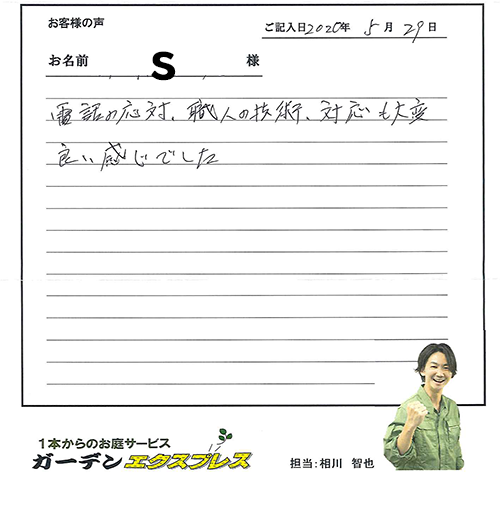 お客様の声
ご記入日2020年 5月 29日
お名前 S 様
電話の応対、職人の技術、対応も大変
良い感じでした
1本からのお庭サービス
ガーデンエクスプレス
担当:相川 智也